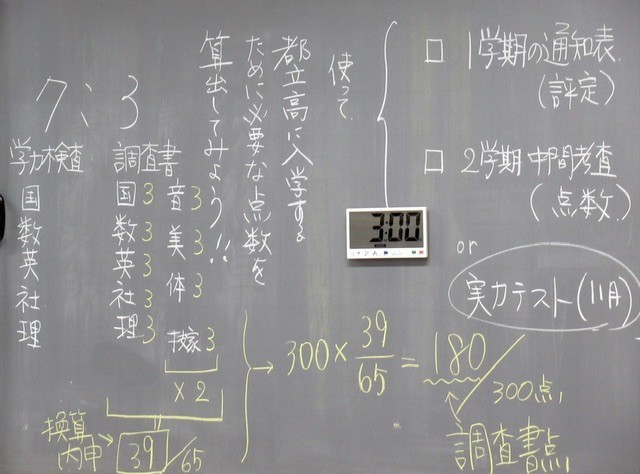 □ 1学期の通知表
(評定)
□ 2学期 中間考査
(点数)
or
実力テスト(11月)
使って
都立高に入学する
ために必要な点数を
算出してみよう!!
3:00
7:3
学力検査 調査書
国 国3 音3
数 数3 美3
英 英3 体3
社 社3 技家3
理 理3
×2
換算
内申 → 39/65
→ 300 × 39/65 = 180/300点
調査書点